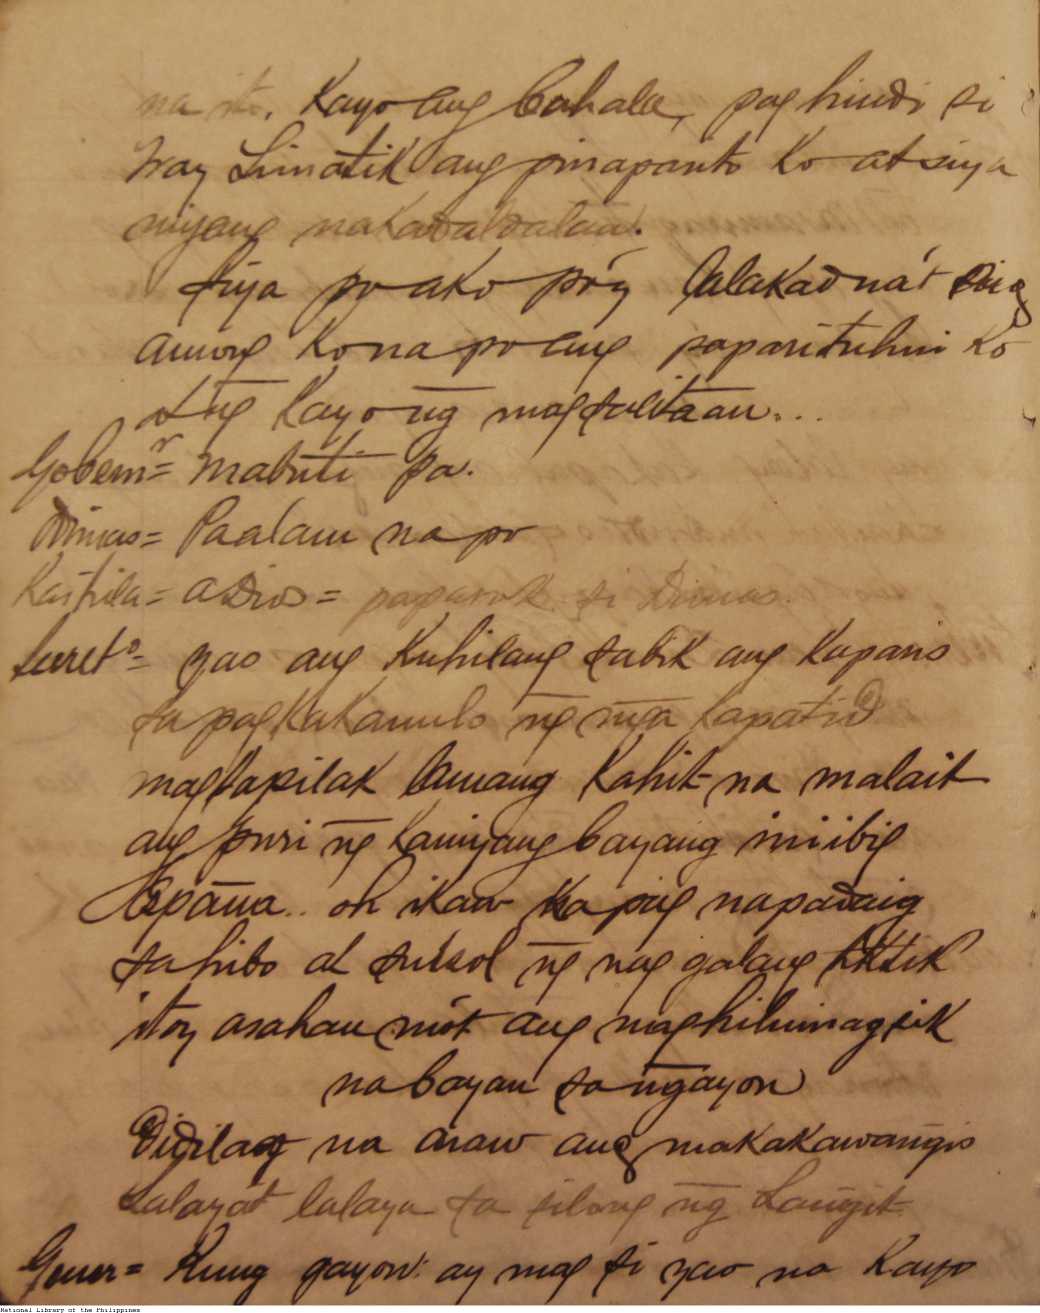 na ito. Kayo ang bahala, pag hindi si
Tray Limatik ang pinapanto ko at siya
niyang nakadaldalan.
Siya po ako póy lalakad nát
amoy ko na po ang saparituhin ko
at ng Kayo ng magsalitaan...
Gobernr= Mabuti pa.
Dimas= Paalam na po
Kastila= adios = papasok si Dimas.
Secreto= yao ang Kuhilang sabik ang Kaparis
sa pagkakanulo ng mga Kapatid
magtapilak lamang Kahit na malait
ang puri ng Kaniyang bayang iniibig
España.. oh ikaw Ka pag napadaig
sa hibo at sulsol ng nag galang tiktik
itoy asahan mót ang maghihimagsik
na bayan sa ngayon
Didilag na araw ang makakawangis
Lalayát lalaya sa silong ng Langit
Gover= Kung gayon: ay mag si yao na Kayo
National Library of the Philippines